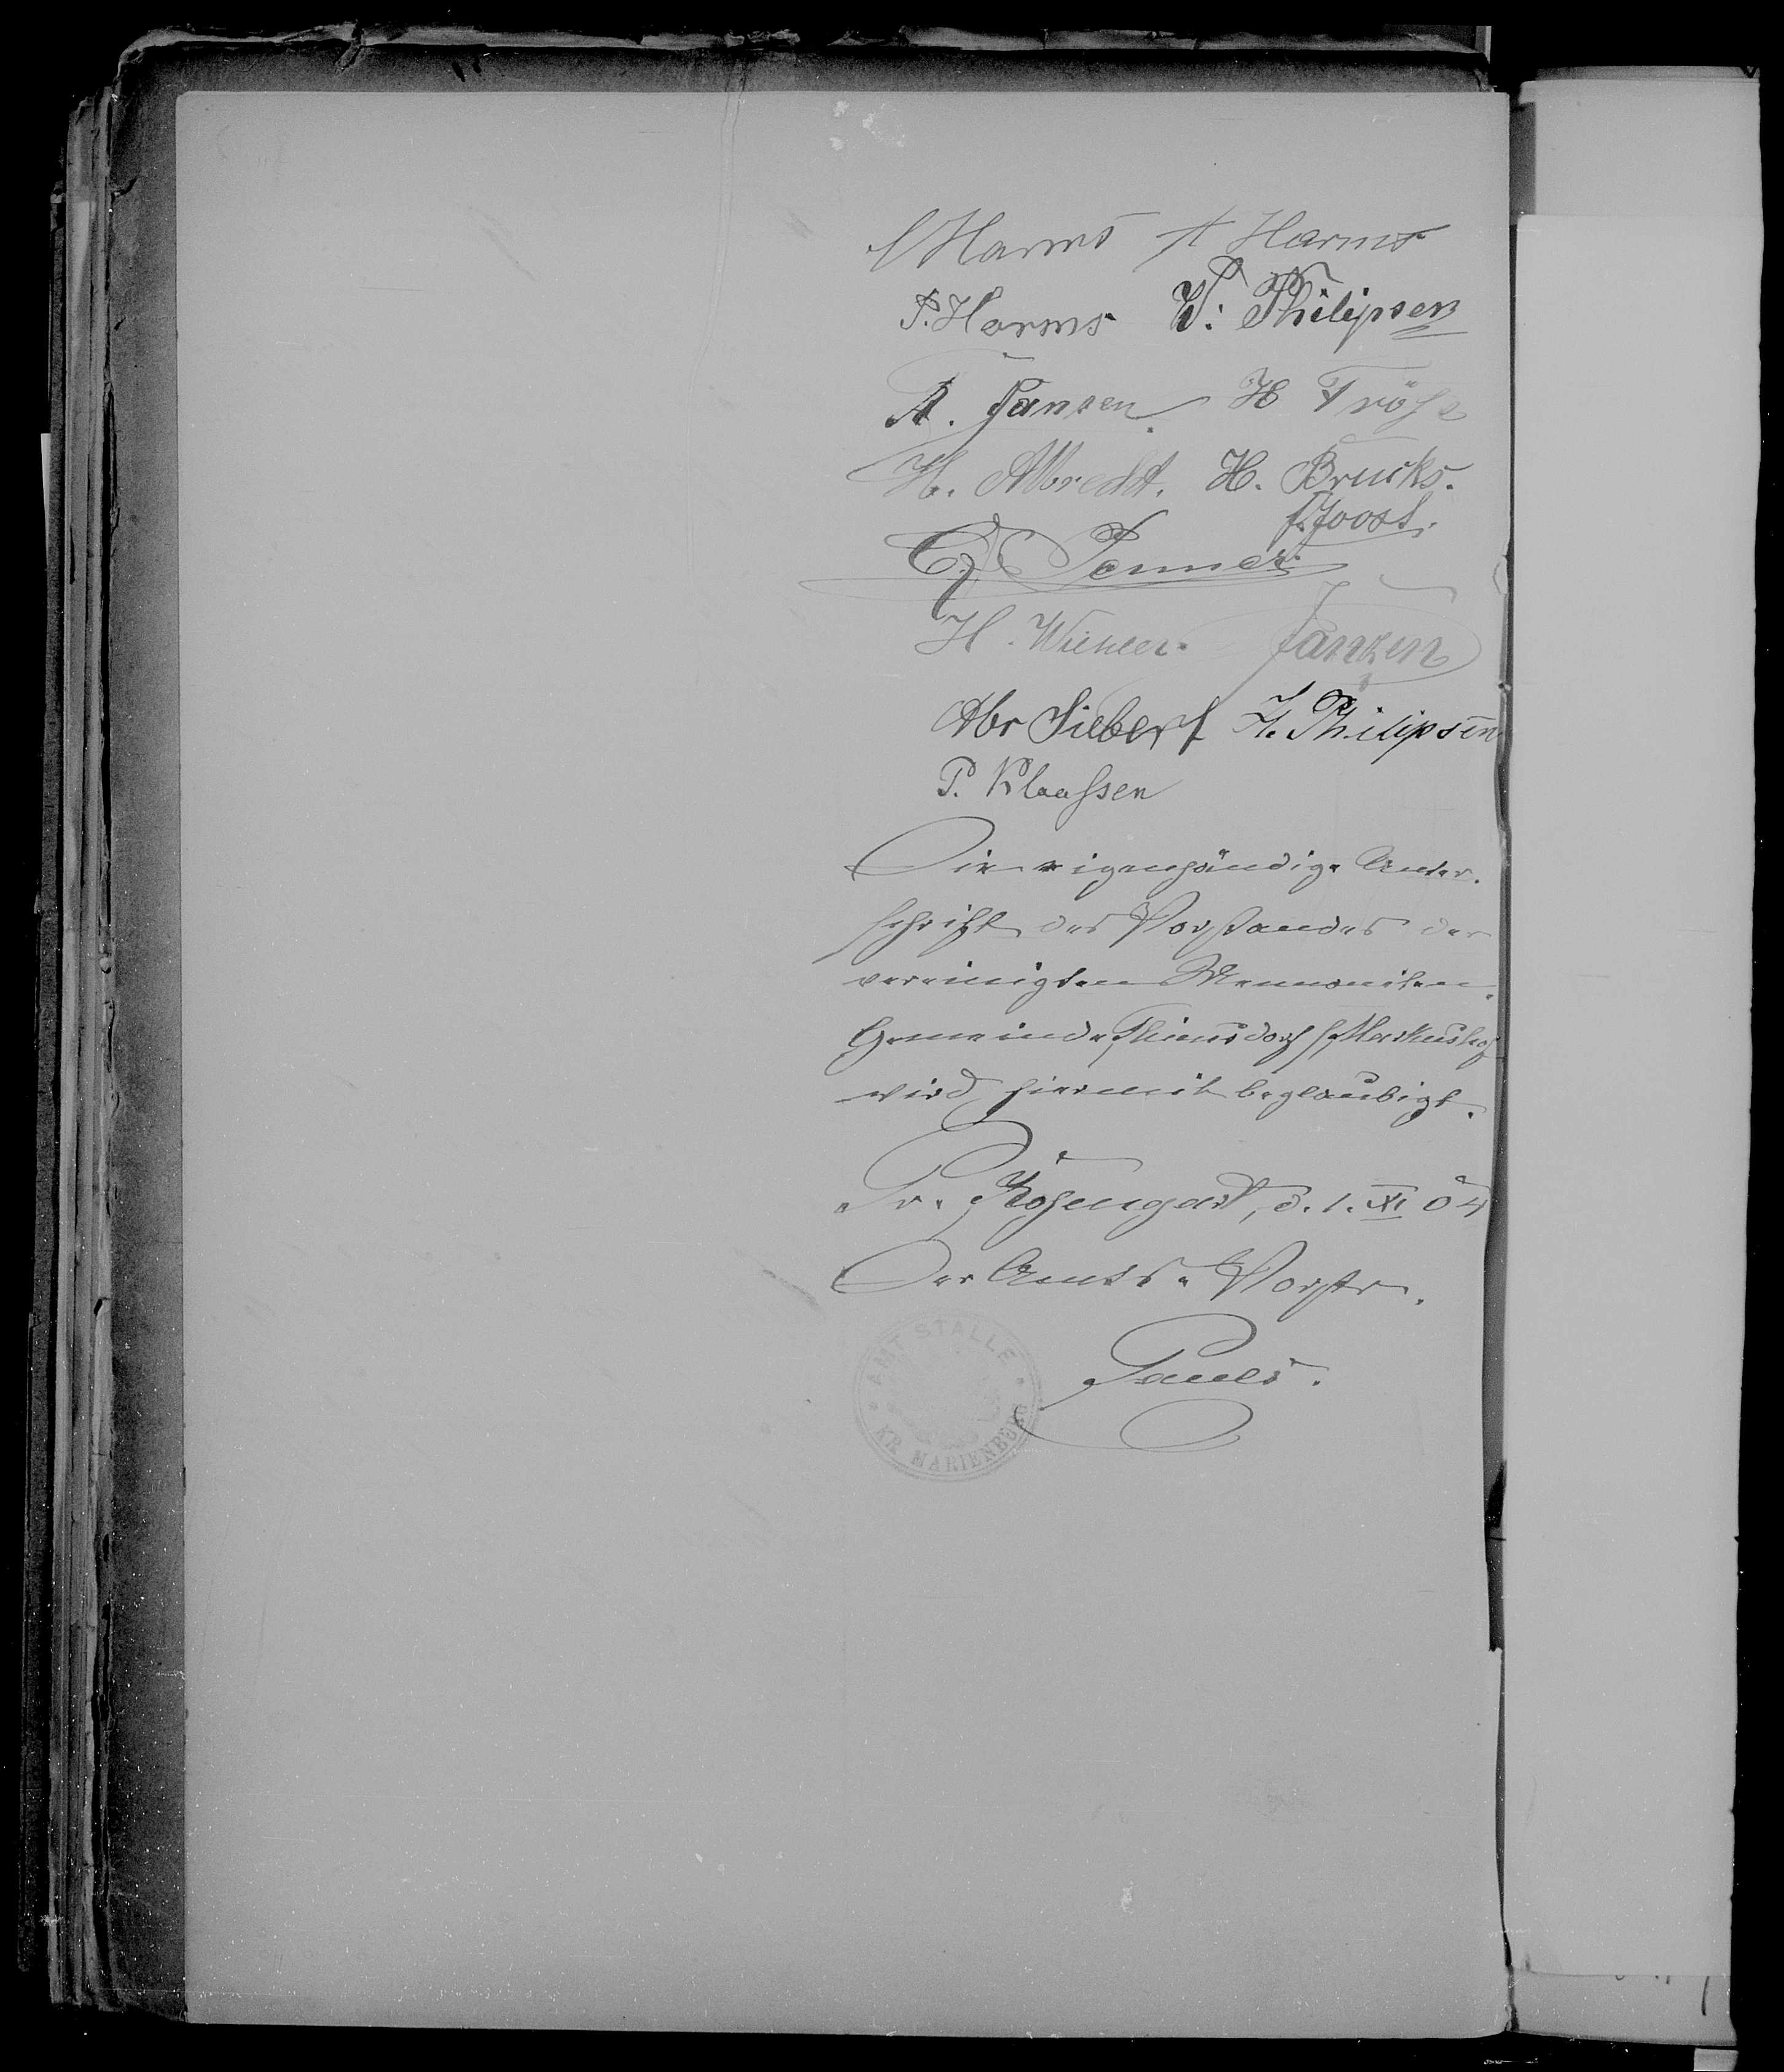 Harms A Harms
P. Harms W. Philipsen
A. Jansen. H Fröse
H. Albrecht. H. Brucks.
J. Joost.
C. Penner
H. Wiehler. Janzen
Abr Siebert H. Philipsen
P. Klaassen
Die eigenhändige Unter-
schrift des Vorstandes der
vereinigten Mennoniten-
Gemeinde Thiensdorf/Markushof
wird hiermit beglaubigt.
Pr. Rosengart, d. 1. XI 04
Der Amts-Vorstr.
Pauls.
AMT STALLE
KR. MARIENBURG